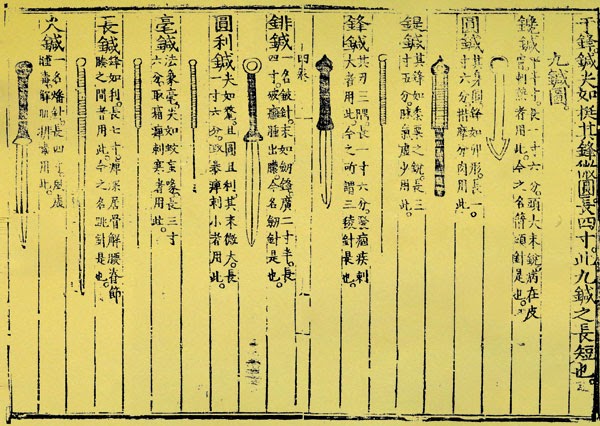 鍼尖如挺其鋒微圓長四寸此九鍼之長短也。
九鍼圖。
鑱鍼
平半寸長一寸六分頭大末銳病在皮
膚刺熱者用此。今之名箭頭針是也。
圓鍼
其身圓鋒如卵形。長一
寸六分揩摩分肉用此。
鍉鍼
其鋒如黍粟之銳。長三
寸五分。脉氣虛少用此。
鋒鍼
其刃三隅。長一寸六分。發痼疾刺
大者用此。今之所謂三稜針是也。
鈹鍼
一名鈹針。末如劒鋒。廣二寸半。長
四寸。破癰腫出膿。今名劒針是也。
圓利鍼
尖如氂。且圓且利。其末微大。長
一寸六分。取暴痹刺小者用此。
毫鍼
法象毫。尖如蚊虻喙。長三寸
六分。取痛痹刺寒者用此。
長鍼
鋒如利。長七寸。痹深居骨解腰脊節
腠之間者用此。今之名跳針是也。
火鍼
一名燔針。長四寸。風虛
腫毒。解肌排毒用此。